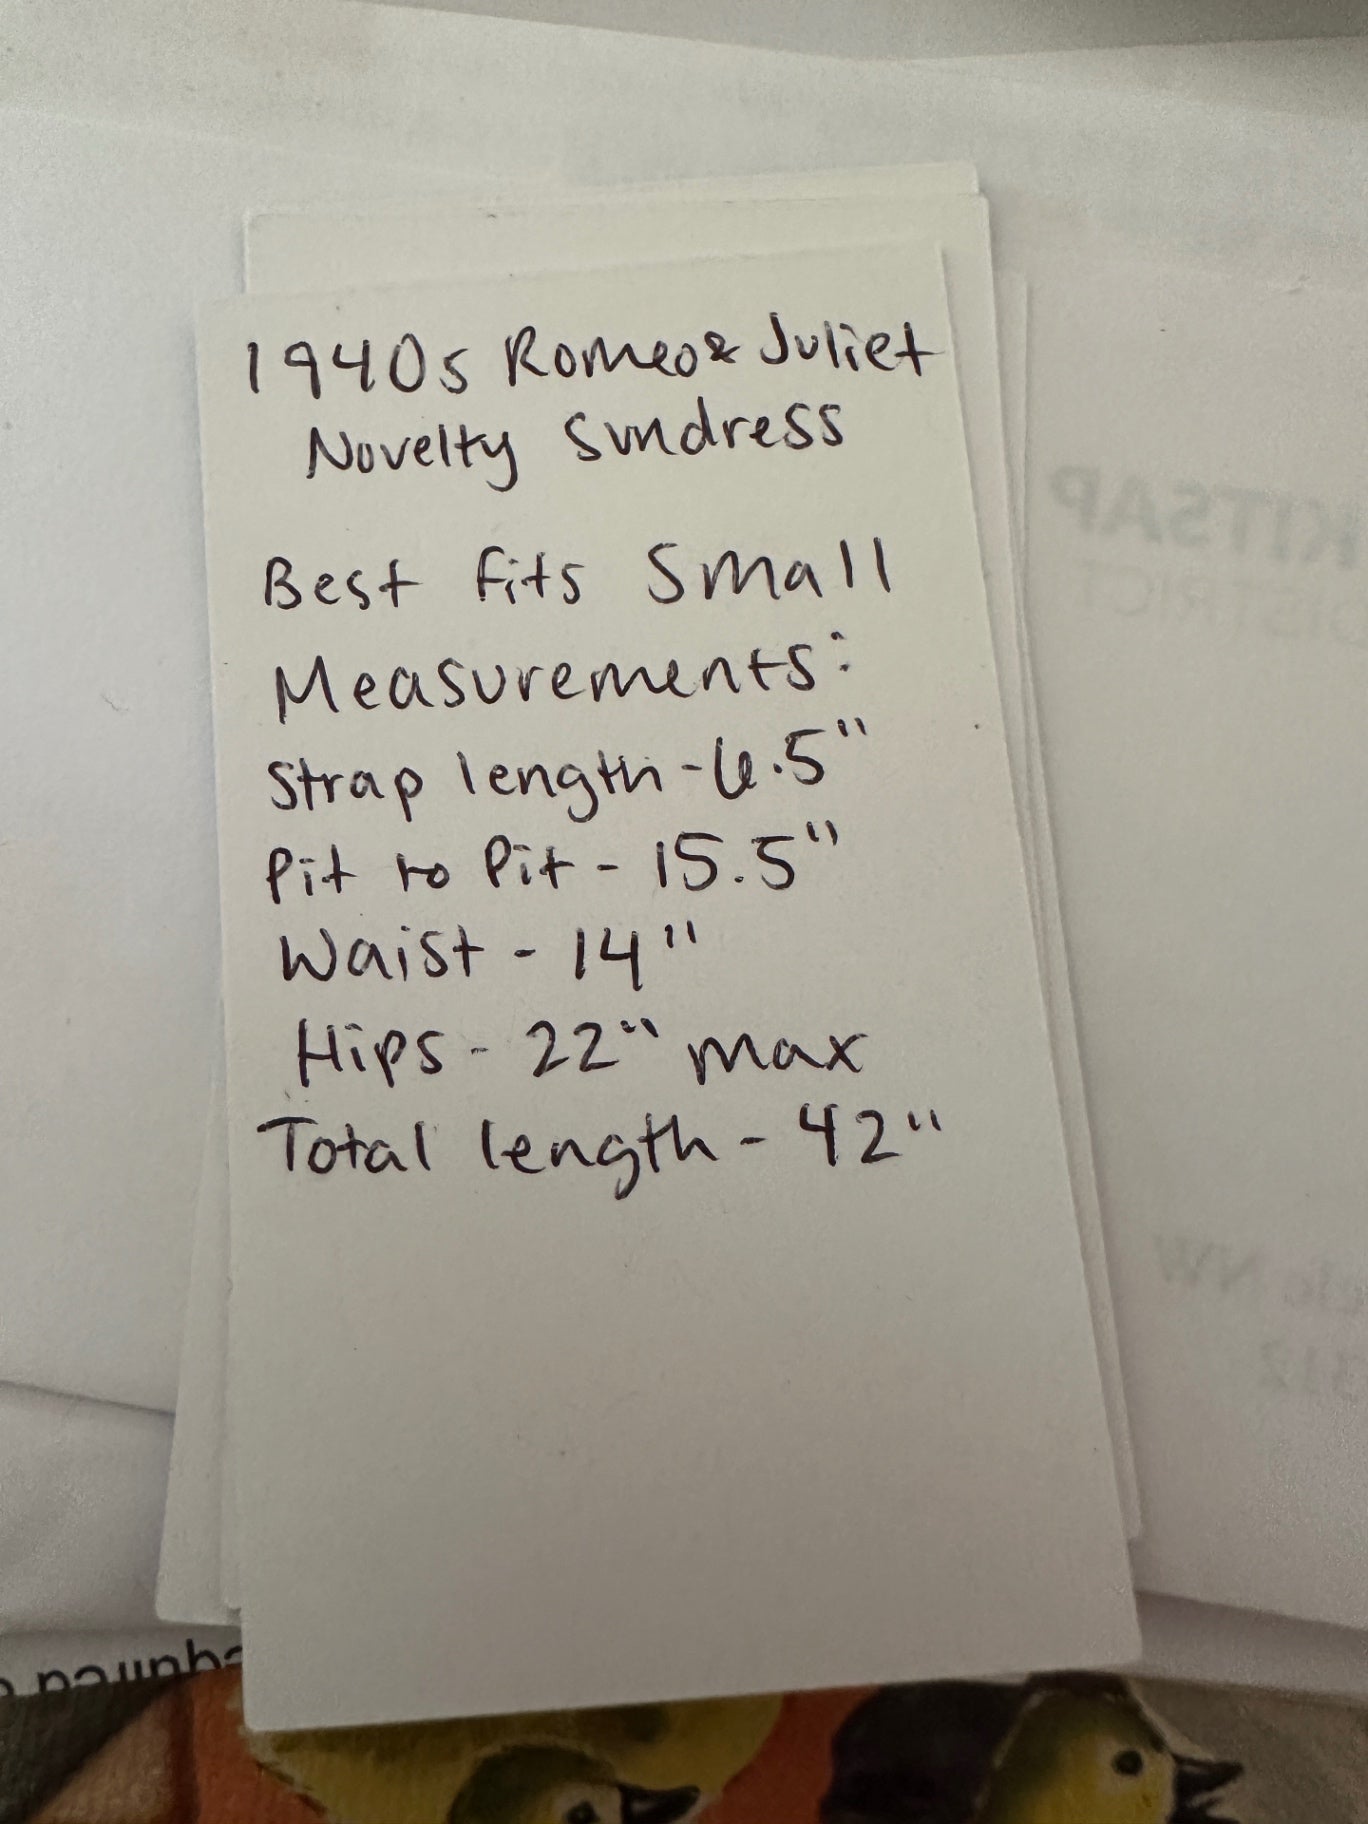 1940s Romeo & Juliet
Novelty Sundress
Best fits Small
Measurements:
Strap length - 6.5"
Pit to Pit - 15.5"
Waist - 14"
Hips - 22" max
Total length - 42"
KITSAP
DISTRICT
NW